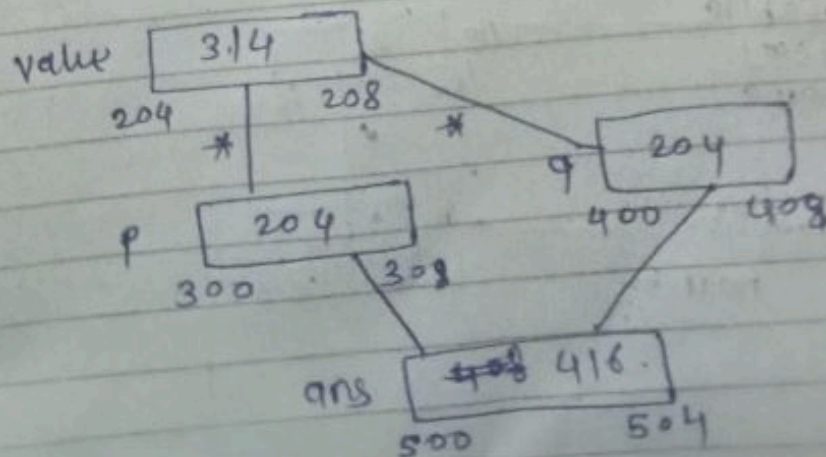 value 3.14
204 208
* *
q 204
400 408
p 204
300 308
ans 416.
500 504